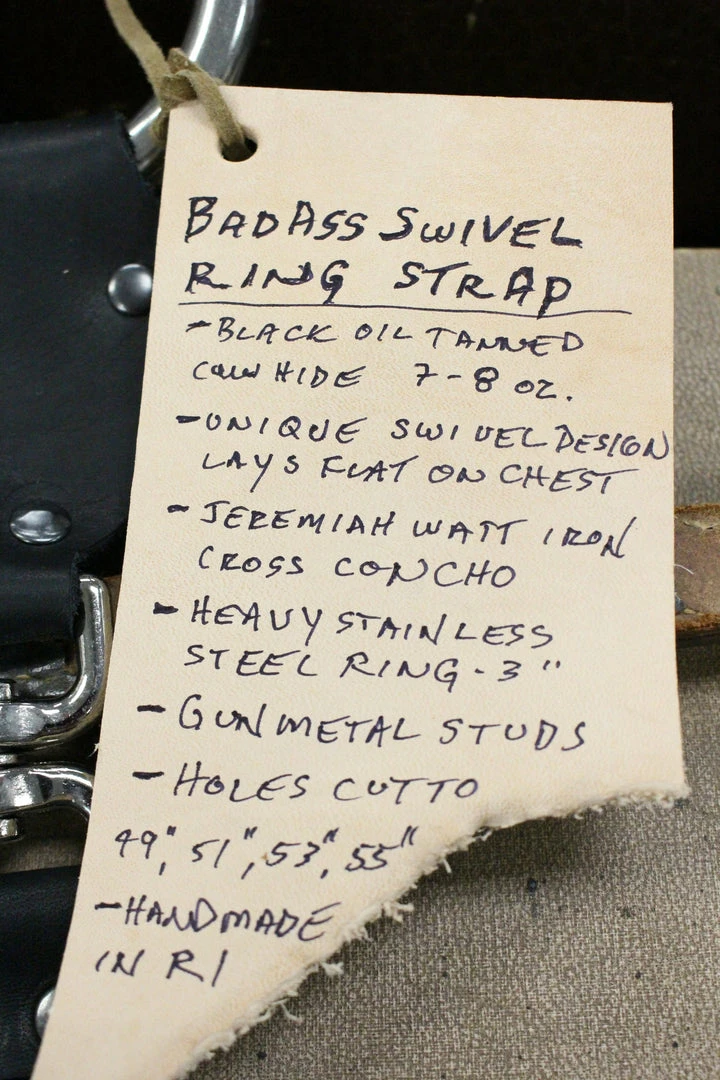 BADASS SWIVEL
RING STRAP
- BLACK OIL TANNED
COWHIDE 7-8 OZ.
- UNIQUE SWIVEL DESIGN
LAYS FLAT ON CHEST
- JEREMIAH WATT IRON
CROSS CONCHO
- HEAVY STAINLESS
STEEL RING - 3"
- GUNMETAL STUDS
- HOLES CUT TO
49", 51", 53", 55"
- HANDMADE
IN RI